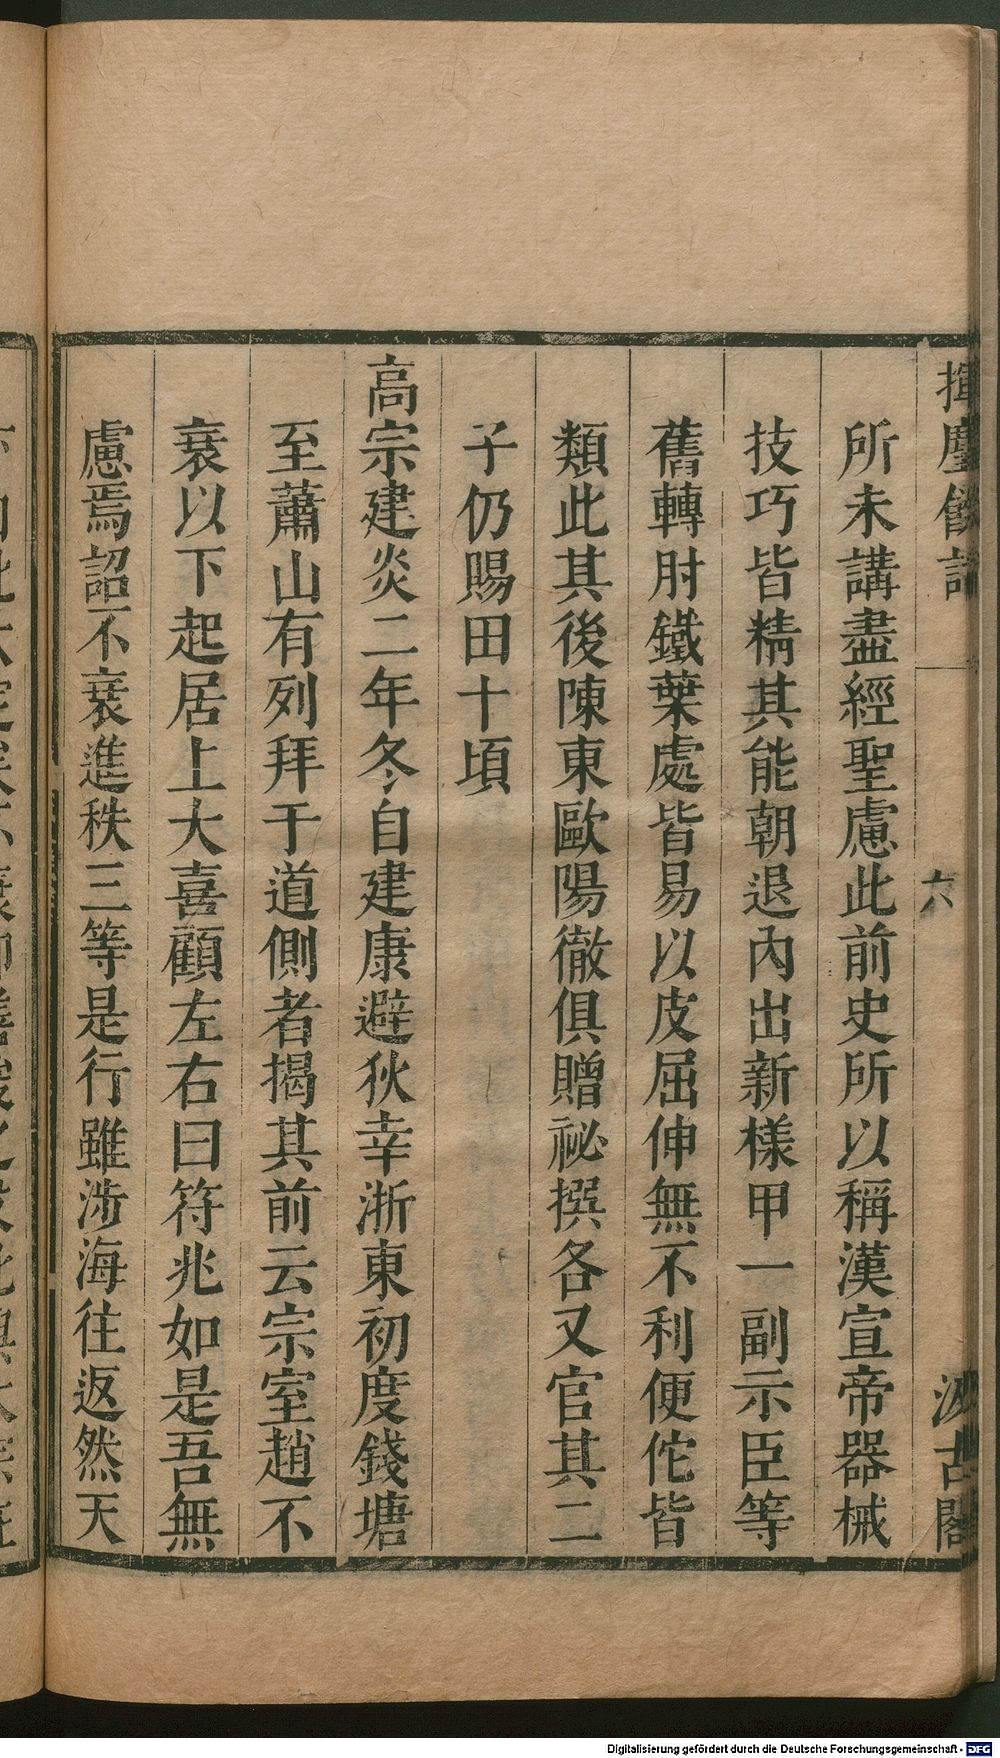 揮麈餘話
六
汲古閣
所未講盡經聖慮此前史所以稱漢宣帝器械
技巧皆精其能朝退內出新樣甲一副示臣等
舊轉肘鐵葉處皆易以皮屈伸無不利便佗皆
類此其後陳東歐陽徹俱贈祕撰各又官其二
子仍賜田十頃
高宗建炎二年冬自建康避狄幸浙東初度錢塘
至蕭山有列拜于道側者揭其前云宗室趙不
衰以下起居上大喜顧左右曰符兆如是吾無
慮焉詔不衰進秩三等是行雖涉海往返然天
Digitalisierung gefördert durch die Deutsche Forschungsgemeinschaft - DFG